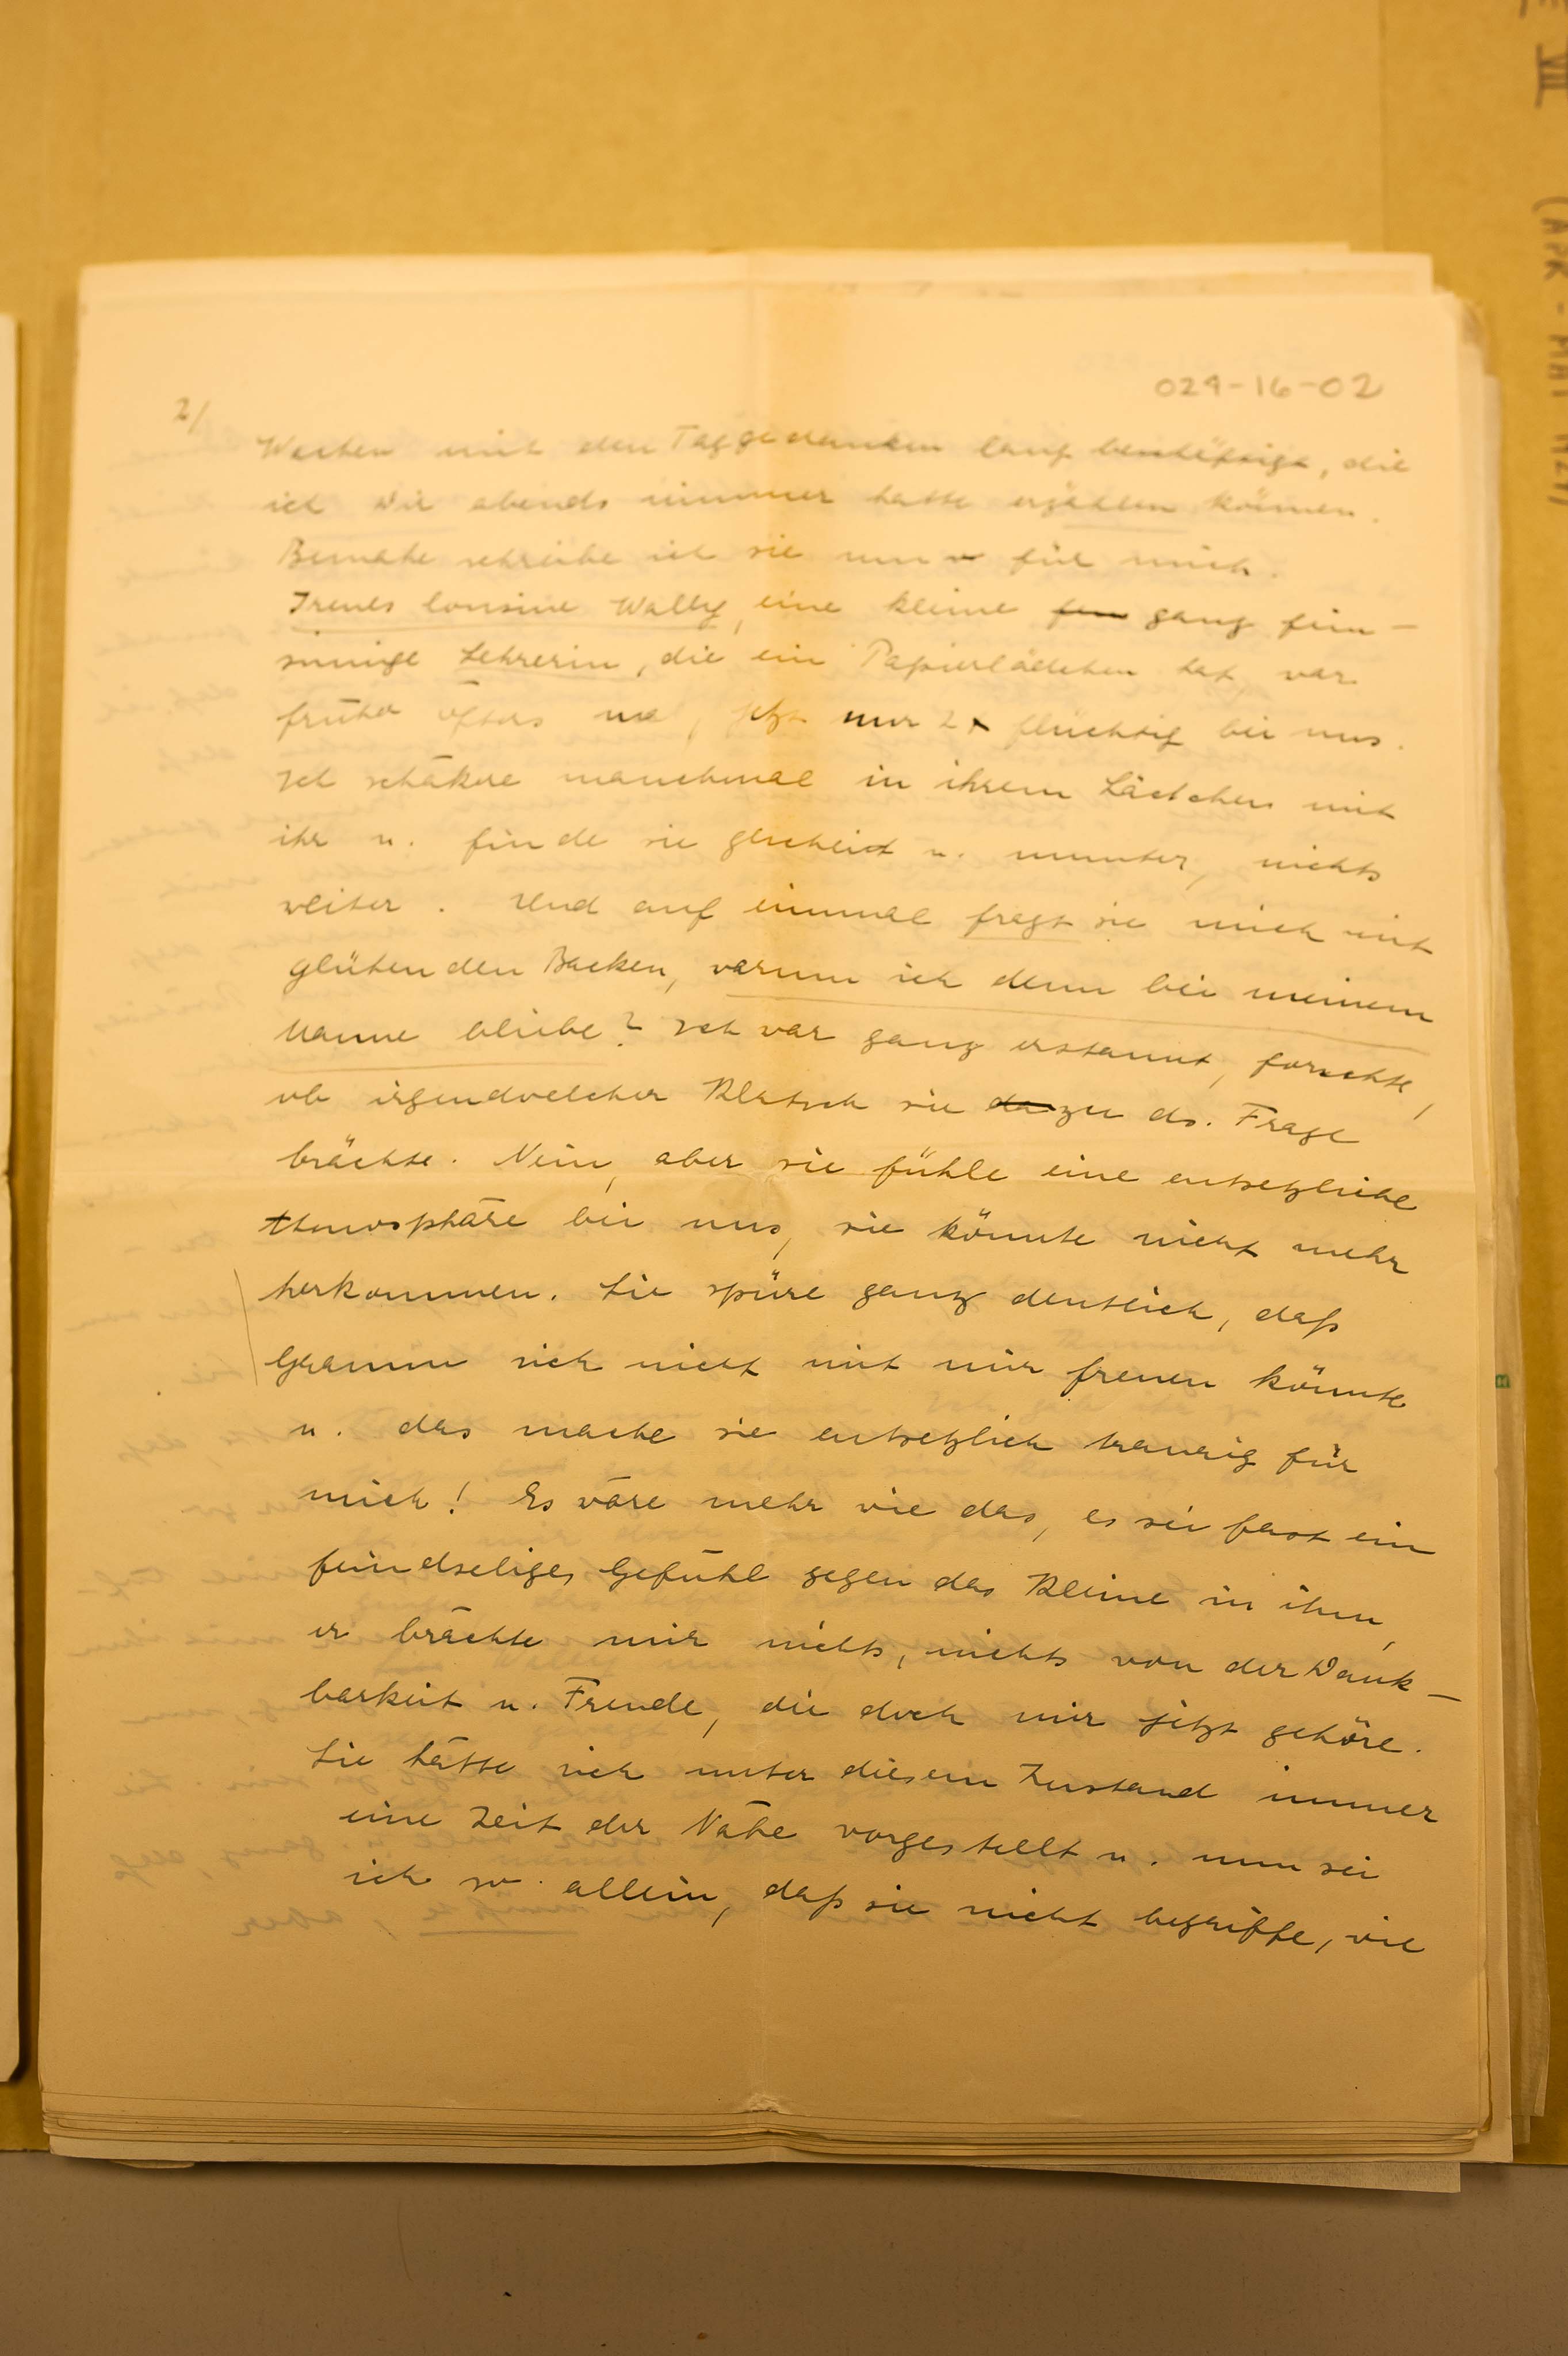 029-16-02
2/
Wachen mit den Taggedanken lang beschäftigt, die
ich Dir abends nimmer hatte erzählen können.
Beinahe schreibe ich sie nun für mich.
Irenes Cousine Wally, eine kleine ganz fein-
sinnige Lehrerin, die ein Papierlädchen hat, war
früher öfters mal, jetzt nur 2 x flüchtig bei uns.
Ich schäkere manchmal in ihrem Lädchen mit
ihr u. finde sie gescheid u. munter, nichts
weiter. Und auf einmal fragt sie mich mit
glühenden Backen, warum ich denn bei meinem
Manne bliebe? Ich war ganz erstaunt, forschte,
ob irgendwelcher Klatsch sie dazu ds. Frage
brächte. Nein, aber sie fühle eine entsetzliche
Atmosphäre bei uns, sie könnte nicht mehr
herkommen. Sie spüre ganz deutlich, daß
Gramm sich nicht mit mir freuen könnte
u. das mache sie entsetzlich traurig für
mich! Es wäre mehr wie das, es sei fast ein
feindseliges Gefühl gegen das Kleine in ihm,
er brächte mir nichts, nichts von der Dank-
barkeit u. Freude, die doch mir jetzt gehöre.
Sie hätte sich unter diesem Zustand immer
eine Zeit der Nähe vorgestellt u. nun sei
ich so allein, daß sie nicht begriffe, wie